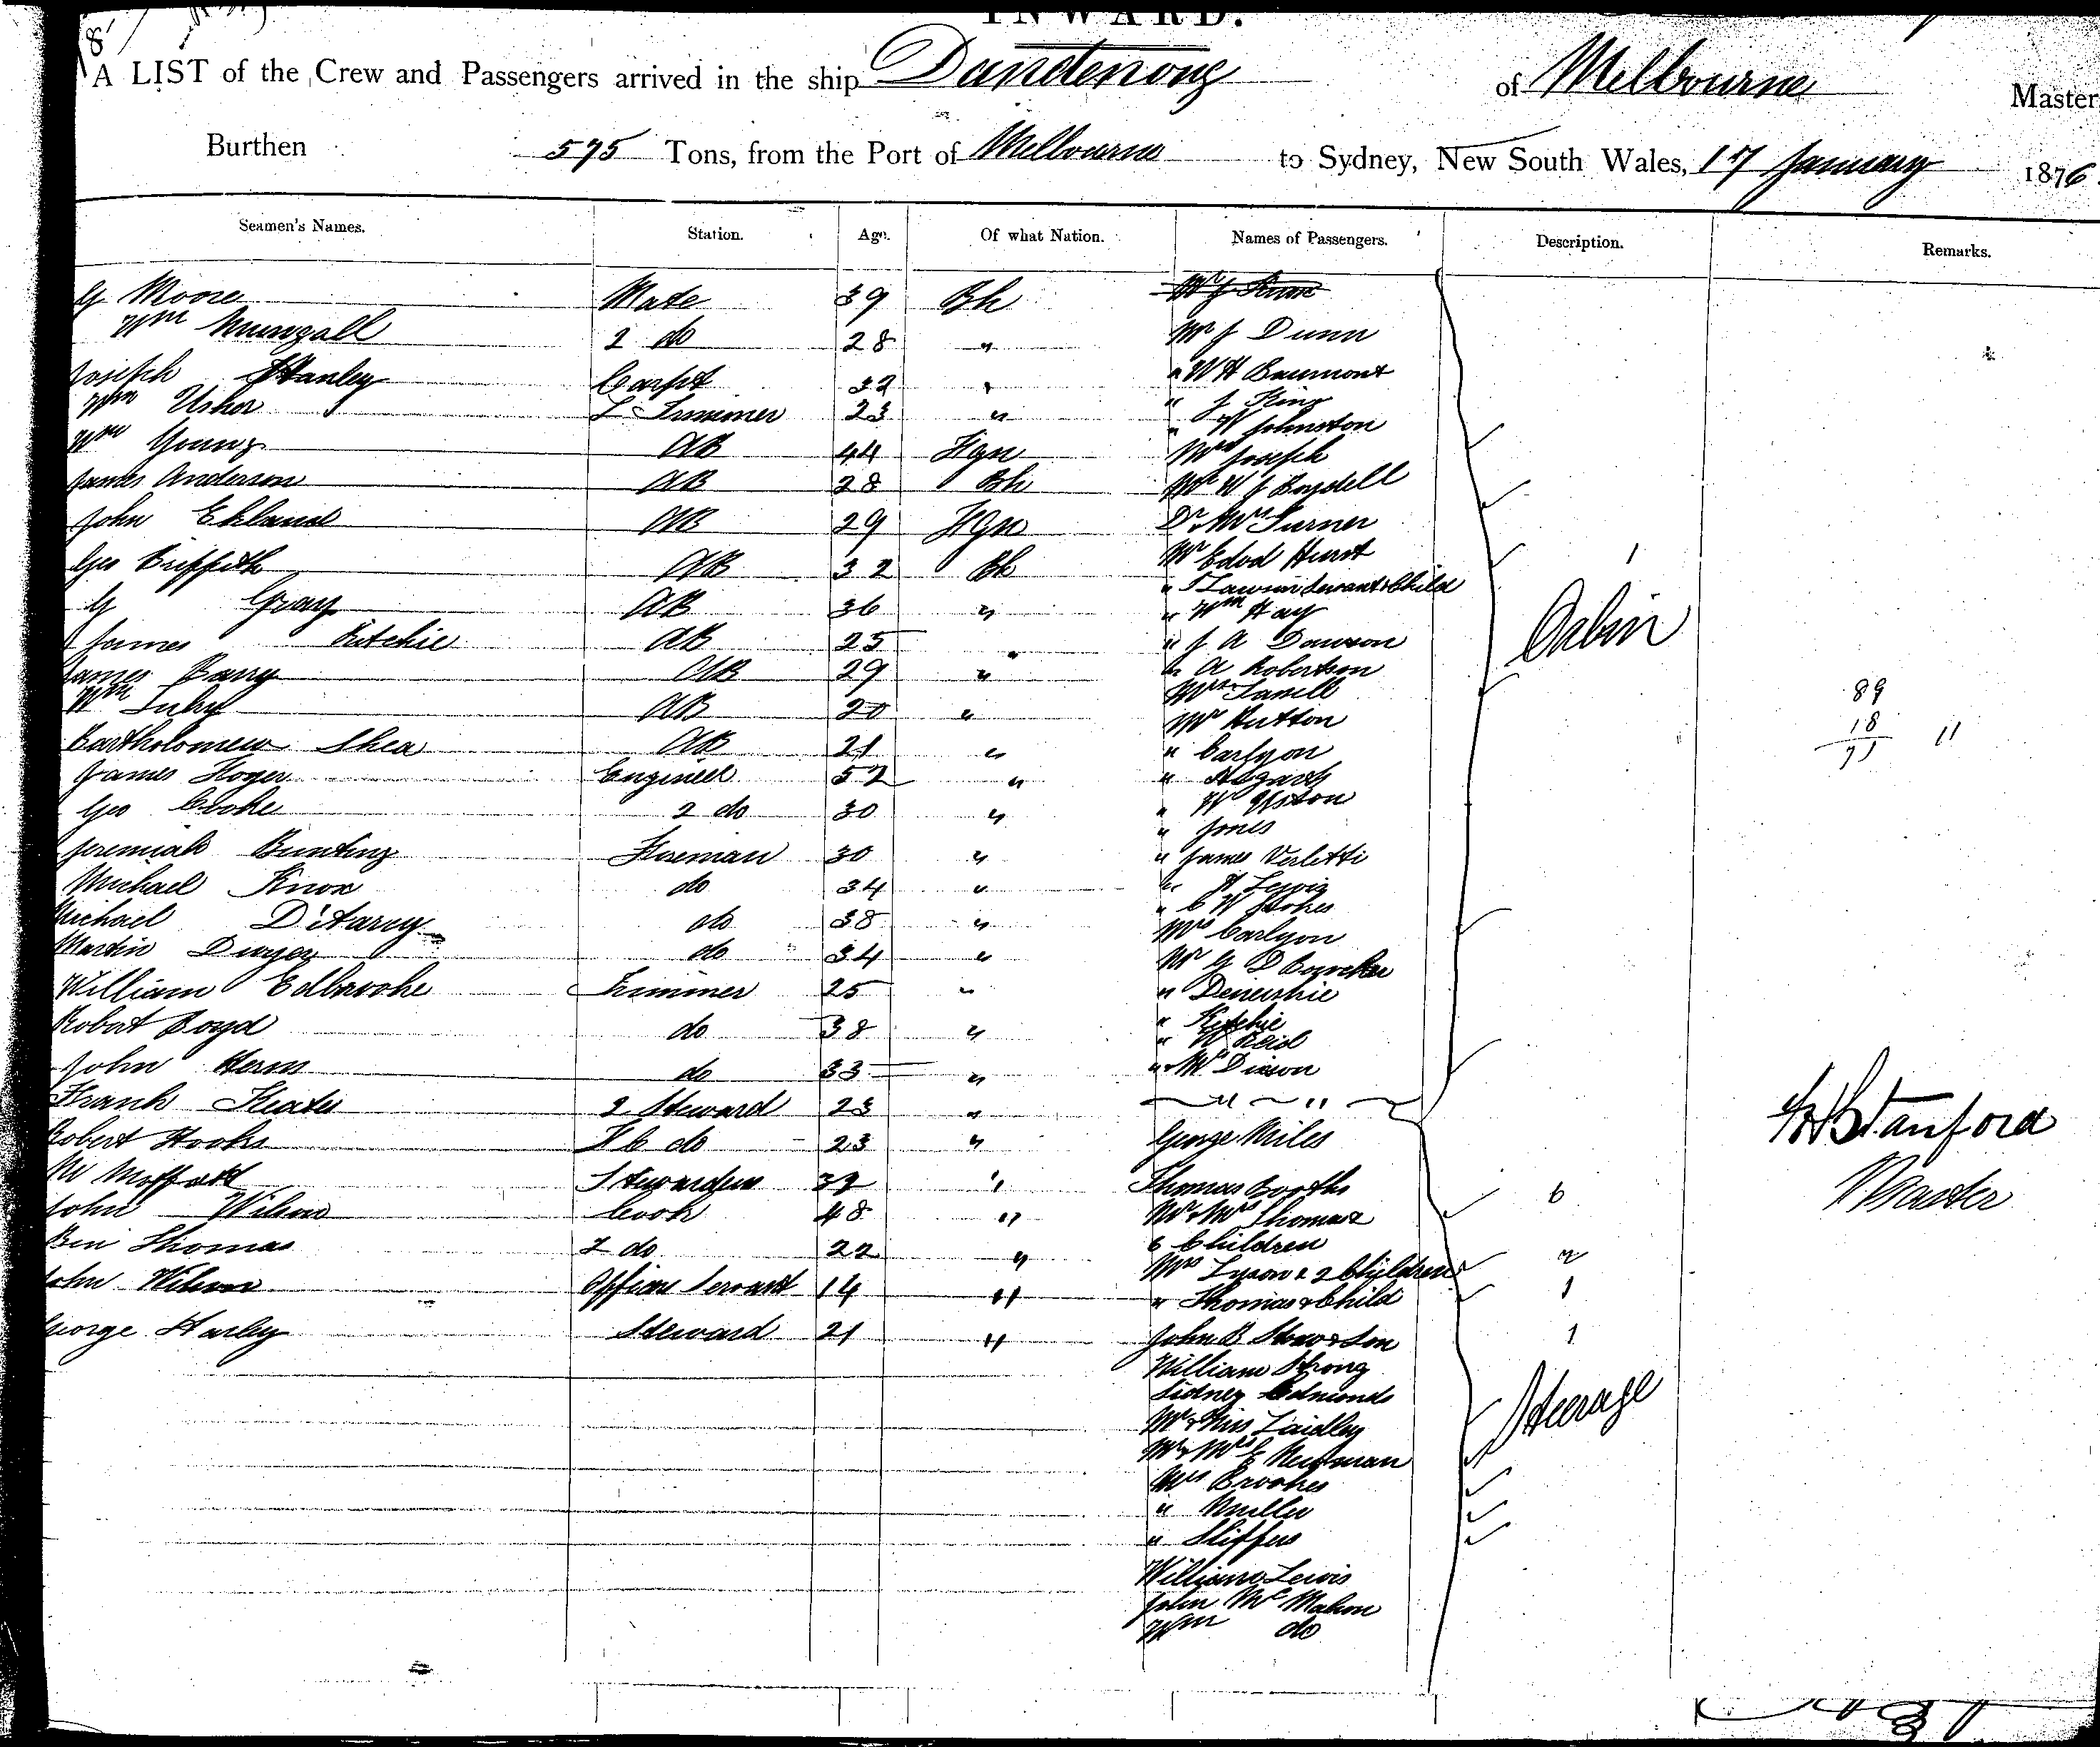 INWARD.
A LIST of the Crew and Passengers arrived in the ship Dandenong of Melbourne Master
Burthen 595 Tons, from the Port of Melbourne to Sydney, New South Wales, 17 January 1876
Seamen's Names. Station. Age. Of what Nation. Names of Passengers. Description. Remarks.
G Moore Mate 39 Bh
Wm 2 do 28 " Mr J Dunn
Joseph Stanley Carpt 32 " " W H Beaumont
Wm Usher L Trimmer 23 " " J King
" W Johnston
Wm Young AB 44 Fgn Mrs Joseph
James Anderson AB 28 Bh Mr W J Boydell
John Ekland AB 29 FGn Dr & Mrs Turner
Geo Griffith AB 32 Bh Mr Edwd Hurst 1
" T Lawson Servant & Child
G Gray AB 36 " " Wm Hay Cabin
James Ritchie AB 25 " " J A Dawson
James Barry AB 29 " " A Robertson
Mrs 89
Wm Luby AB 20 " Mr Hutton 18
Bartholomew Shea AB 21 " " Carlyon 71 11
James Engineer 52 " "
Geo Cooke 2 do 30 " " W
" Jones
Jeremiah Bunting Fireman 30 " " James Verletti
Michael Knox do 34 " "
" C W Stokes
Michael D'Arcy do 38 " Mrs Carlyon
Martin Dwyer do 34 " Mr G D
William Edbrooke Trimmer 25 " "
Robert Boyd do 38 " " Ritchie
" W Reid
John Herm do 33 " " Mrs Dixon
Frank 2 Steward 23 " " "
Robert Hooks F C do 23 " George Miles
M Moffatt Stewardess 32 " Thomas Booths
John Wilson Cook 48 " Mr & Mrs Thomas & 6
Ben Thomas 2 do 22 " 6 Children
Mrs Lyson & 2 Children 2
John Wilson Officers Servant 14 " " Thomas & Child 1
George Harley Steward 21 " John B Shaw & Son 1
William Strong
Sidney Edmonds
Mr & Miss Laidley Steerage
Mr & Mrs E Newman
Mrs Brookes
" Miller
"
William Lewis
John McMahon
Wm do
Stanford
Master